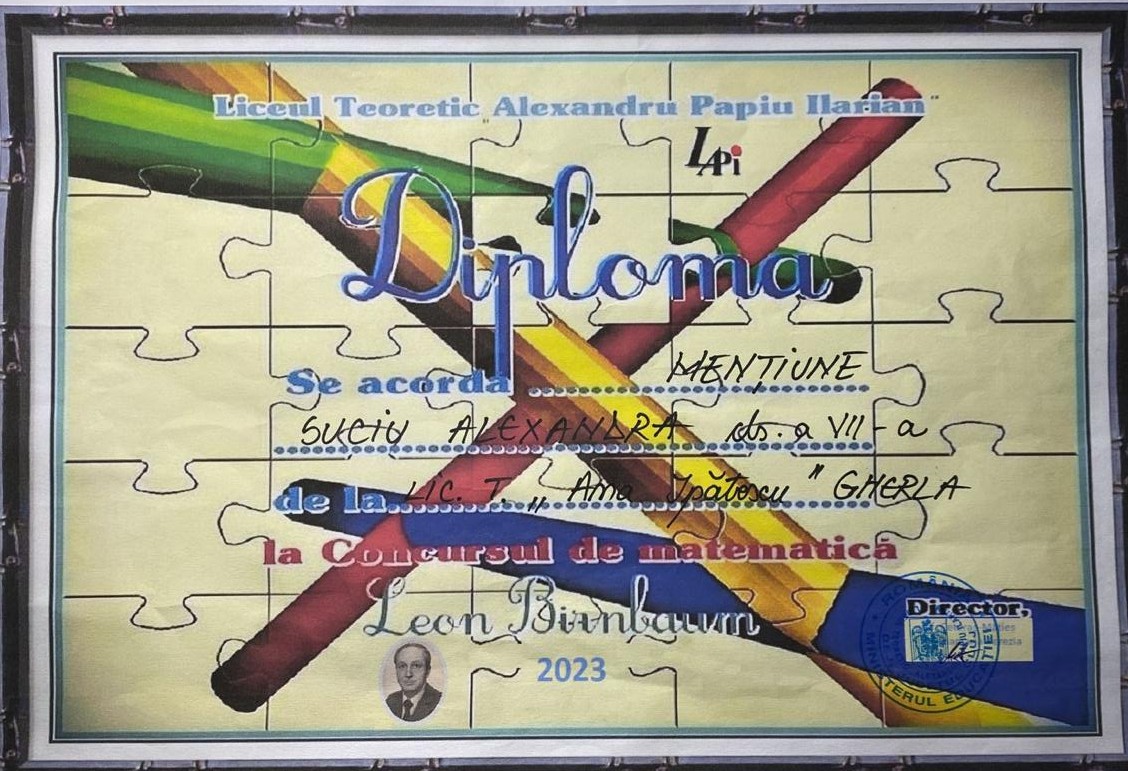 Liceul Teoretic „Alexandru Papiu Ilarian"
LAPi
Diploma
Se acordă MENȚIUNE
SUCIU ALEXANDRA cls. a VII-a
de la LIC. T. „Ana Ipătescu" GHERLA
la Concursul de matematică
Leon Birnbaum
2023
Director,
ROMÂNIA
MINISTERUL EDUCAȚIEI